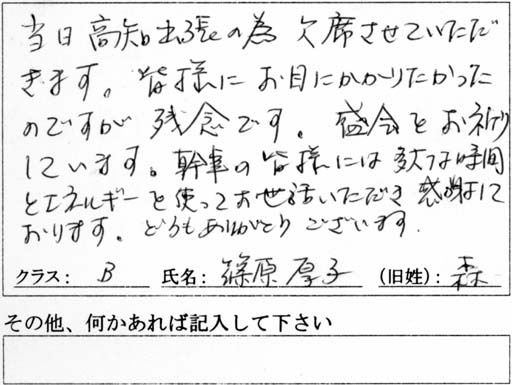 当日高知出張の為 欠席させていただ
きます。皆様にお目にかかりたかった
のですが 残念です。盛会をお祈り
しています。幹事の皆様には多大な時間
とエネルギーを使ってお世話いただき感謝して
おります。どうもありがとうございます.
クラス: B 氏名: 篠原厚子 (旧姓): 森
その他、何かあれば記入して下さい